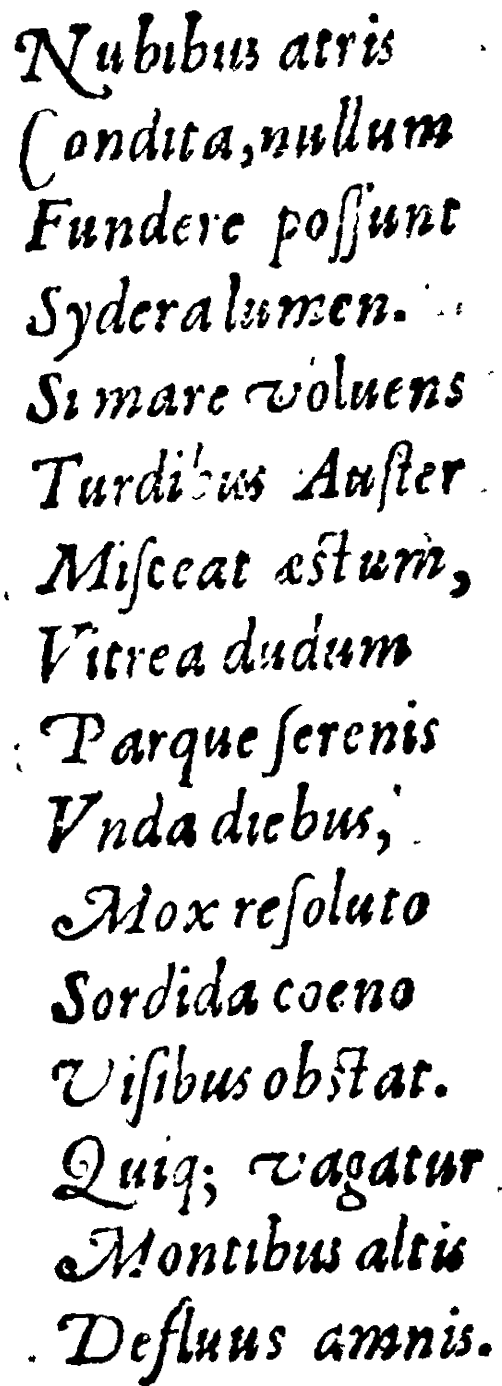 Nubibus atris
Condita, nullum
Fundere poſſunt
Sydera lumen.
Si mare voluens
Turdibus Auſter
Miſceat æſtum,
Vitrea dudum
Parque ſerenis
Vnda diebus,
Mox reſoluto
Sordida coeno
Viſibus obſtat.
Quiq; vagatur
Montibus altis
Defluus amnis.